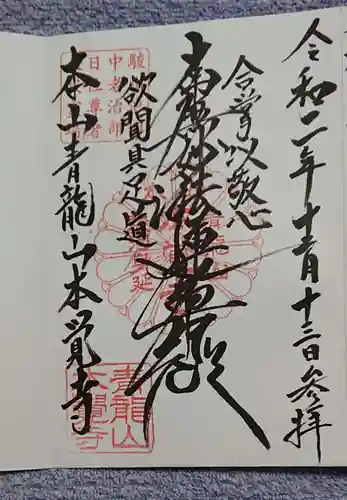 令和二年十二月十三日参拝
合掌以敬心
南無妙法蓮華経
欲聞具足道
本山青龍山本覚寺
駿
中老治部
日位尊者
青龍山
本覺寺